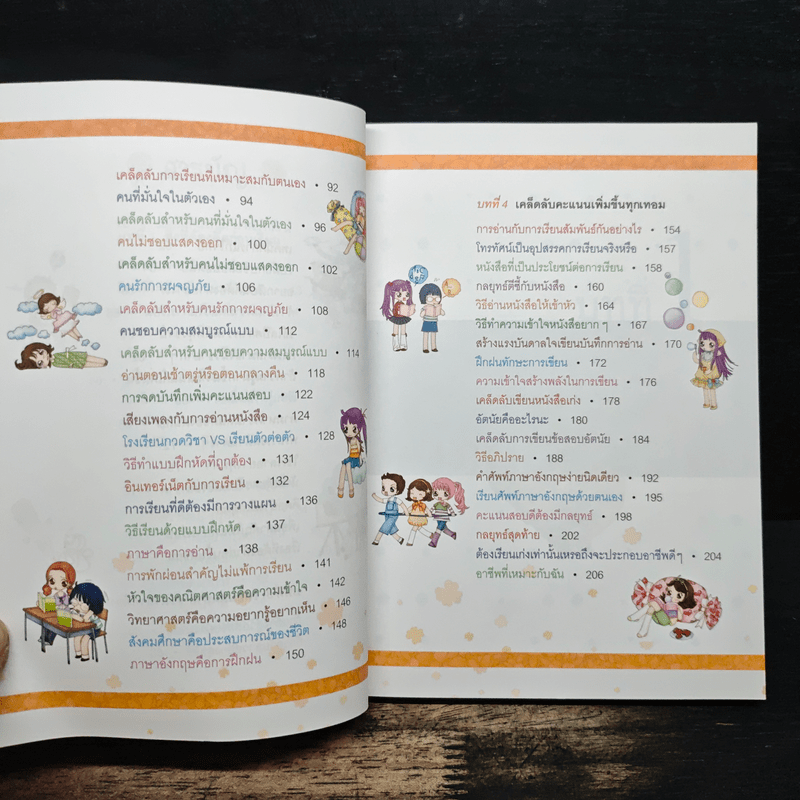 เคล็ดลับการเรียนที่เหมาะสมกับตนเอง • 92
คนที่มั่นใจในตัวเอง • 94
เคล็ดลับสำหรับคนที่มั่นใจในตัวเอง • 96
คนไม่ชอบแสดงออก • 100
เคล็ดลับสำหรับคนไม่ชอบแสดงออก • 102
คนรักการผจญภัย • 106
เคล็ดลับสำหรับคนรักการผจญภัย • 108
คนชอบความสมบูรณ์แบบ • 112
เคล็ดลับสำหรับคนชอบความสมบูรณ์แบบ • 114
อ่านตอนเช้าตรู่หรือตอนกลางคืน • 118
การจดบันทึกเพิ่มคะแนนสอบ • 122
เสียงเพลงกับการอ่านหนังสือ • 124
โรงเรียนกวดวิชา VS เรียนตัวต่อตัว • 128
วิธีทำแบบฝึกหัดที่ถูกต้อง • 131
อินเทอร์เน็ตกับการเรียน • 132
การเรียนที่ดีต้องมีการวางแผน • 136
วิธีเรียนด้วยแบบฝึกหัด • 137
ภาษาคือการอ่าน • 138
การพักผ่อนสำคัญไม่แพ้การเรียน • 141
หัวใจของคณิตศาสตร์คือความเข้าใจ • 142
วิทยาศาสตร์คือความอยากรู้อยากเห็น • 146
สังคมศึกษาคือประสบการณ์ของชีวิต • 148
ภาษาอังกฤษคือการฝึกฝน • 150
บทที่ 4 เคล็ดลับคะแนนเพิ่มขึ้นทุกเทอม
การอ่านกับการเรียนสัมพันธ์กันอย่างไร • 154
โทรทัศน์เป็นอุปสรรคการเรียนจริงหรือ • 157
หนังสือที่เป็นประโยชน์ต่อการเรียน • 158
กลยุทธ์ตีซี้กับหนังสือ • 160
วิธีอ่านหนังสือให้เข้าหัว • 164
วิธีทำความเข้าใจหนังสือยาก ๆ • 167
สร้างแรงบันดาลใจเขียนบันทึกการอ่าน • 170
ฝึกฝนทักษะการเรียน • 172
ความเข้าใจสร้างพลังในการเรียน • 176
เคล็ดลับเขียนหนังสือเก่ง • 178
อัตนัยคืออะไรนะ • 180
เคล็ดลับการเรียนข้อสอบอัตนัย • 184
วิธีอภิปราย • 188
คำศัพท์ภาษาอังกฤษง่ายนิดเดียว • 192
เรียนศัพท์ภาษาอังกฤษด้วยตนเอง • 195
คะแนนสอบดีต้องมีกลยุทธ์ • 198
กลยุทธ์สุดท้าย • 202
ต้องเรียนเก่งเท่านั้นเหรอถึงจะประกอบอาชีพดี ๆ • 204
อาชีพที่เหมาะกับฉัน • 206